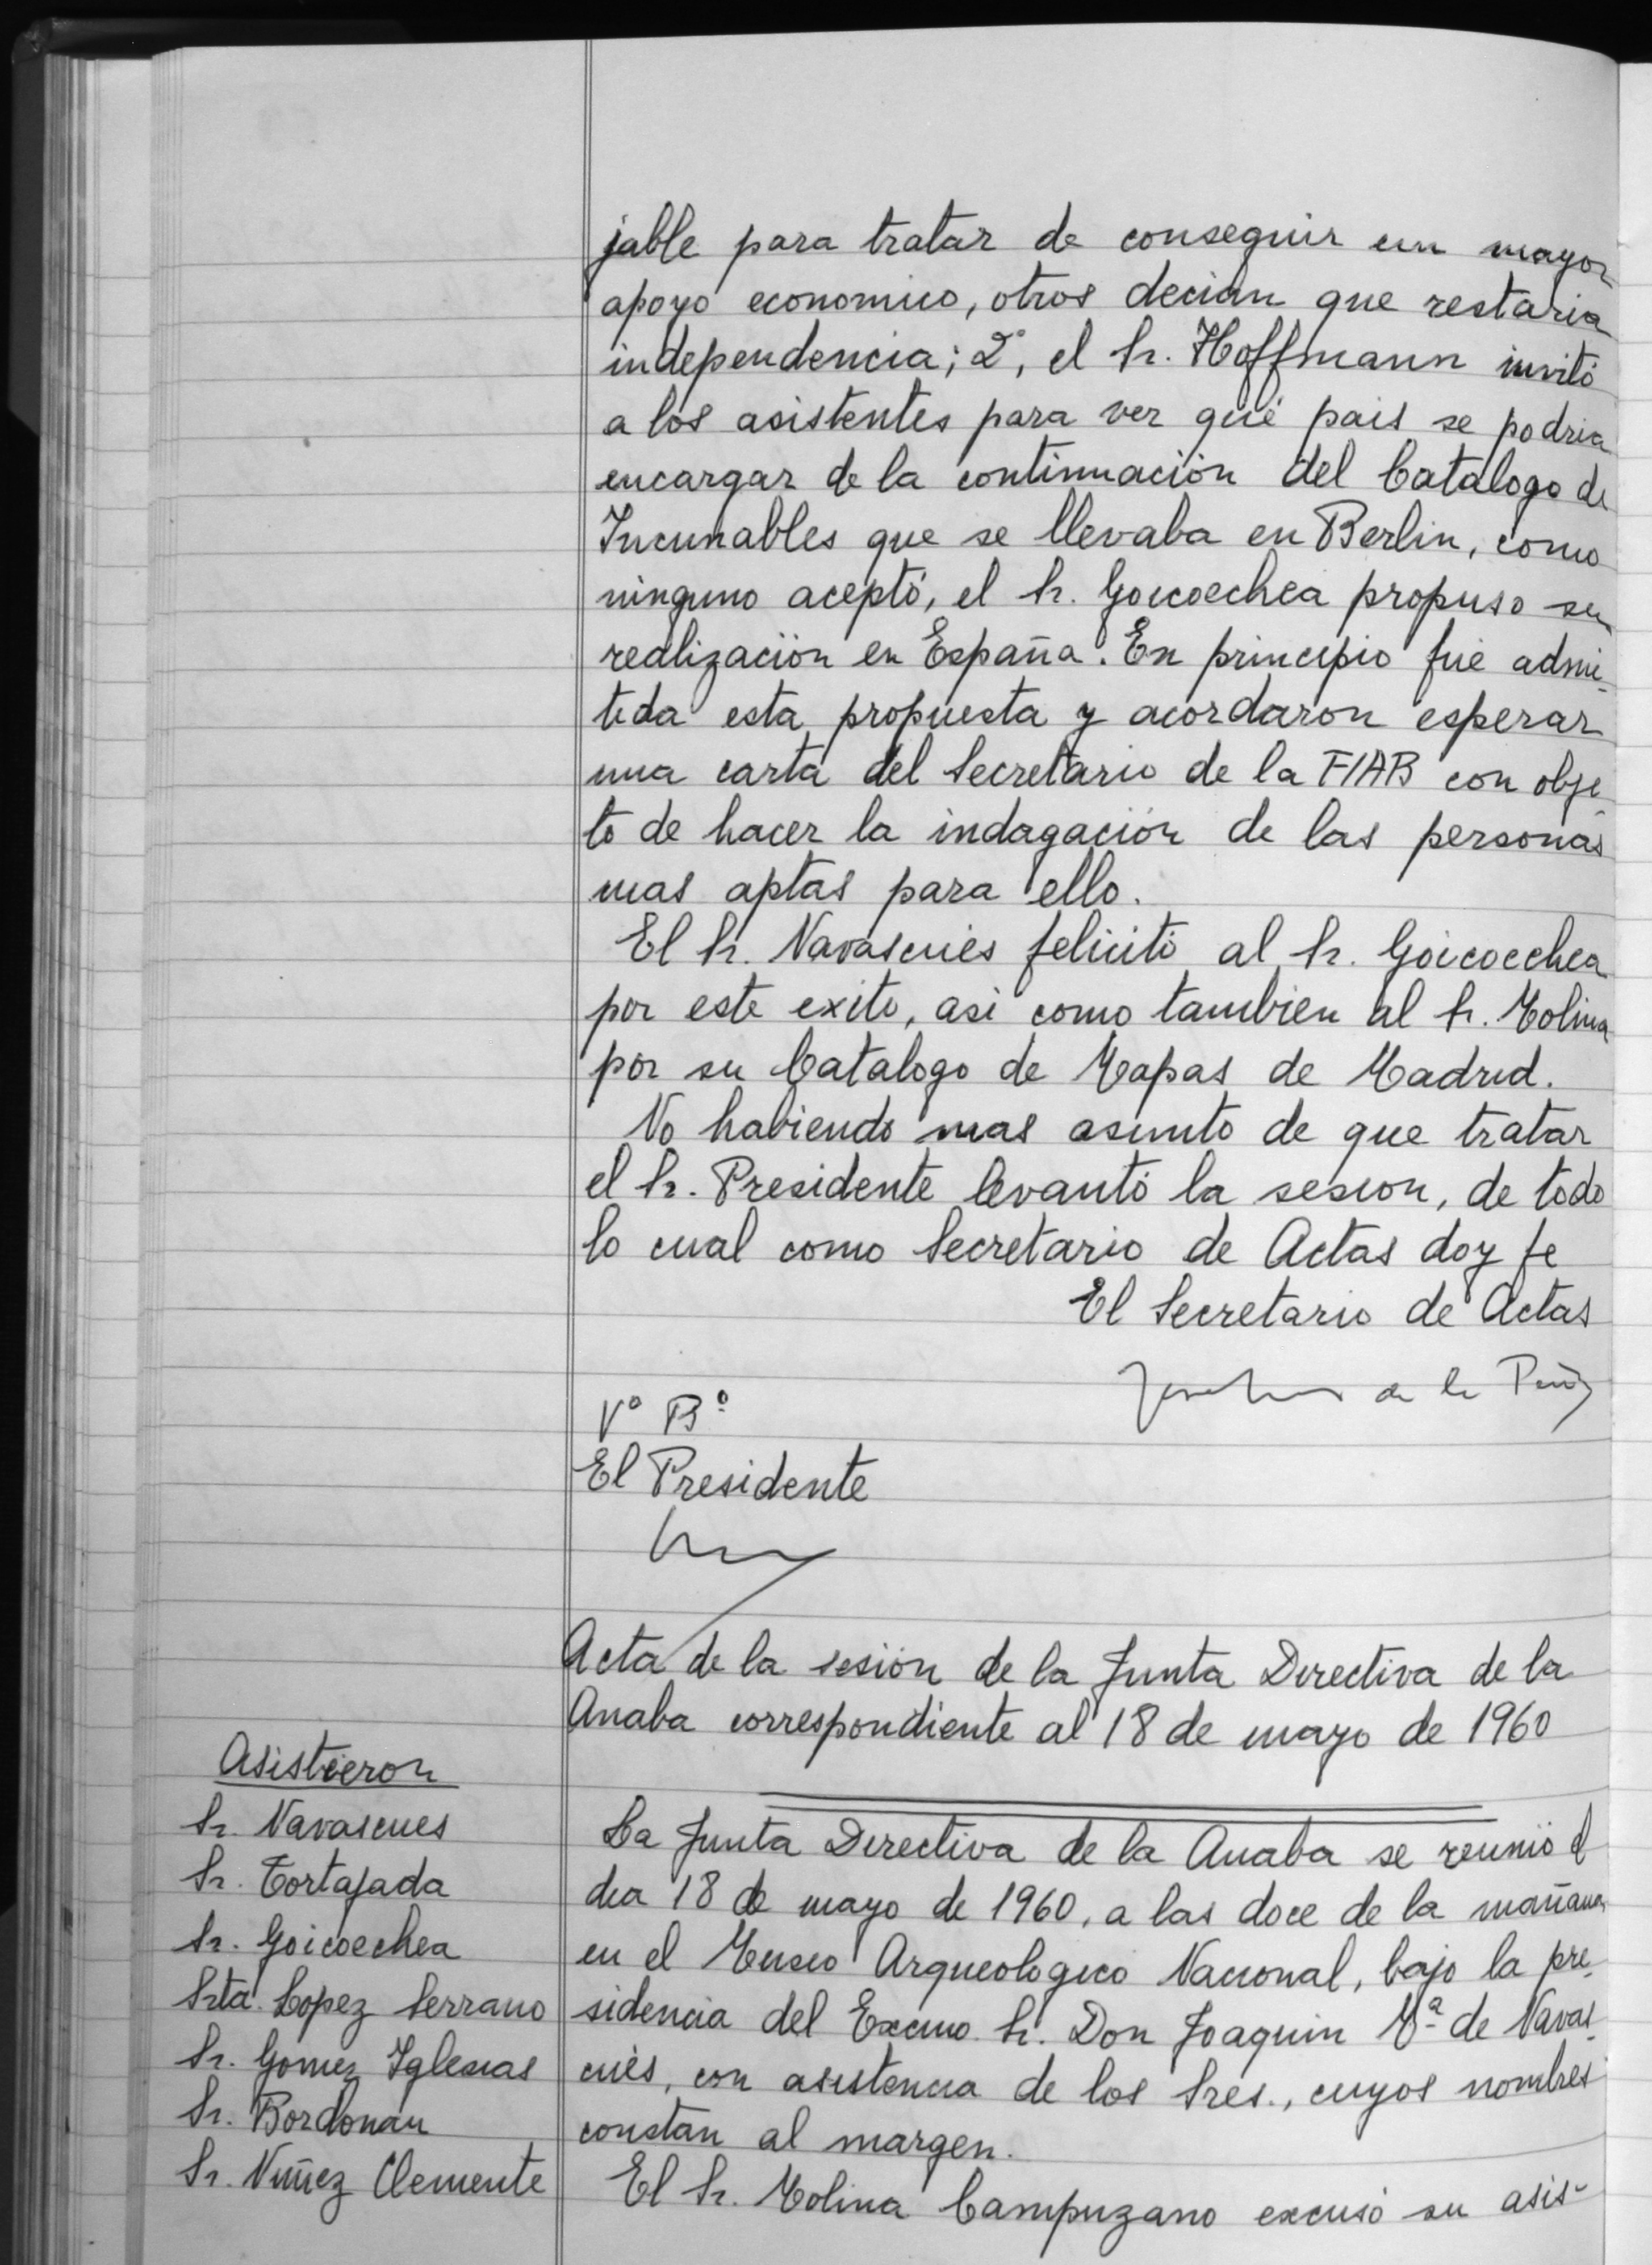 jable para tratar de conseguir un mayor
apoyo economico, otros decian que restaria
independencia; 2°, el Sr. Hoffmann invitó
a los asistentes para ver qué pais se podria
encargar de la continuación del Catalogo de
Incunables que se llevaba en Berlin, como
ninguno aceptó, el Sr. Goicoechea propuso su
realización en España. En principio fue admi-
tida esta propuesta y acordaron esperar
una carta del Secretario de la FIAB con obje-
to de hacer la indagación de las personas
mas aptas para ello.
El Sr. Navascués felicitó al Sr. Goicoechea
por este exito, asi como tambien al Sr. Molina
por su Catalogo de Mapas de Madrid.
No habiendo mas asunto de que tratar
el Sr. Presidente levantó la sesion, de todo
lo cual como Secretario de Actas doy fe
El Secretario de Actas
de la Peña
Vº Bº
El Presidente
Acta de la sesión de la Junta Directiva de la
Anaba correspondiente al 18 de mayo de 1960
Asistieron
Sr. Navascues
Sr. Tortajada
Sr. Goicoechea
Srta. Lopez Serrano
Sr. Gomez Iglesias
Sr. Bordonau
Sr. Nuñez Clemente
La Junta Directiva de la Anaba se reunió el
dia 18 de mayo de 1960, a las doce de la mañana,
en el Museo Arqueologico Nacional, bajo la pre-
sidencia del Excmo. Sr. Don Joaquin Mª de Navas-
cués, con asistencia de los Sres., cuyos nombres
constan al margen.
El Sr. Molina Campuzano excusó su asis-